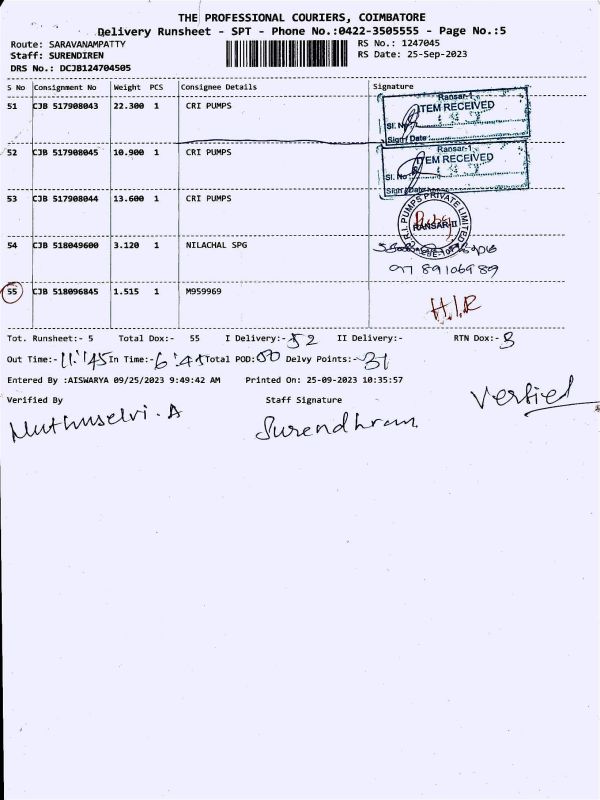 THE PROFESSIONAL COURIERS, COIMBATORE
Delivery Runsheet - SPT - Phone No.:0422-3505555 - Page No.:5
Route: SARAVANAMPATTY RS No.: 1247045
Staff: SURENDIREN RS Date: 25-Sep-2023
DRS No.: DCJB124704505
S No Consignment No Weight PCS Consignee Details Signature
51 CJB 517908043 22.300 1 CRI PUMPS
Ransar-1
ITEM RECEIVED
Sl. No
Sign / Date
52 CJB 517908045 10.900 1 CRI PUMPS
Ransar-1
ITEM RECEIVED
Sl. No
Sign / Date
53 CJB 517908044 13.600 1 CRI PUMPS
C.R.I. PUMPS PRIVATE LIMITED
RANSAR-II
54 CJB 518049600 3.120 1 NILACHAL SPG
9789106989
55 CJB 518096845 1.515 1 M959969
H.I.R
Tot. Runsheet:- 5 Total Dox:- 55 I Delivery:- 52 II Delivery:- RTN Dox:- 3
Out Time:- 11:45 In Time:- 6:45 Total POD: Delvy Points:- 31
Entered By :AISWARYA 09/25/2023 9:49:42 AM Printed On: 25-09-2023 10:35:57
Verified By Staff Signature
Muthuselvi. A Surendhran